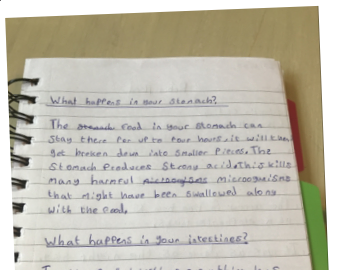 What happens in your stomach?
The food in your stomach can
stay there for up to four hours. it will then
get broken down into smaller pieces. The
stomach produces strong acid. This kills
many harmful microoganisms
that might have been swallowed along
with the food.
What happens in your intestines?